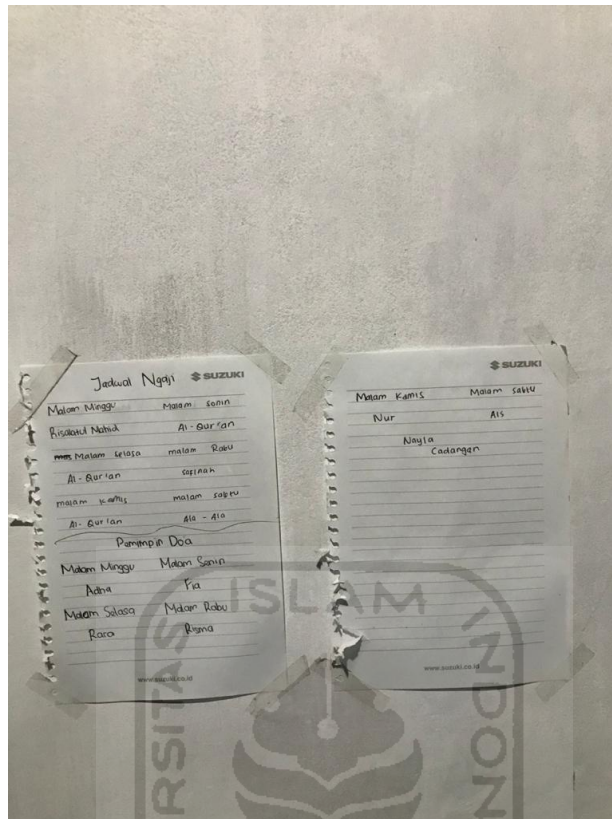 Jadwal Ngaji SUZUKI
Malam Minggu Malam Senin
Risalatul Mahid Al-Qur'an
Malam Selasa malam Rabu
Al-Qur'an Safinah
malam Kamis malam sabtu
Al-Qur'an Ala-Ala
Pemimpin Doa
Malam Minggu Malam Senin
Adha Fia
Malam Selasa Malam Rabu
Rara Risma
www.suzuki.co.id
SUZUKI
Malam Kamis Malam Sabtu
Nur Als
Nayla
Cadangan
www.suzuki.co.id
ISLAM